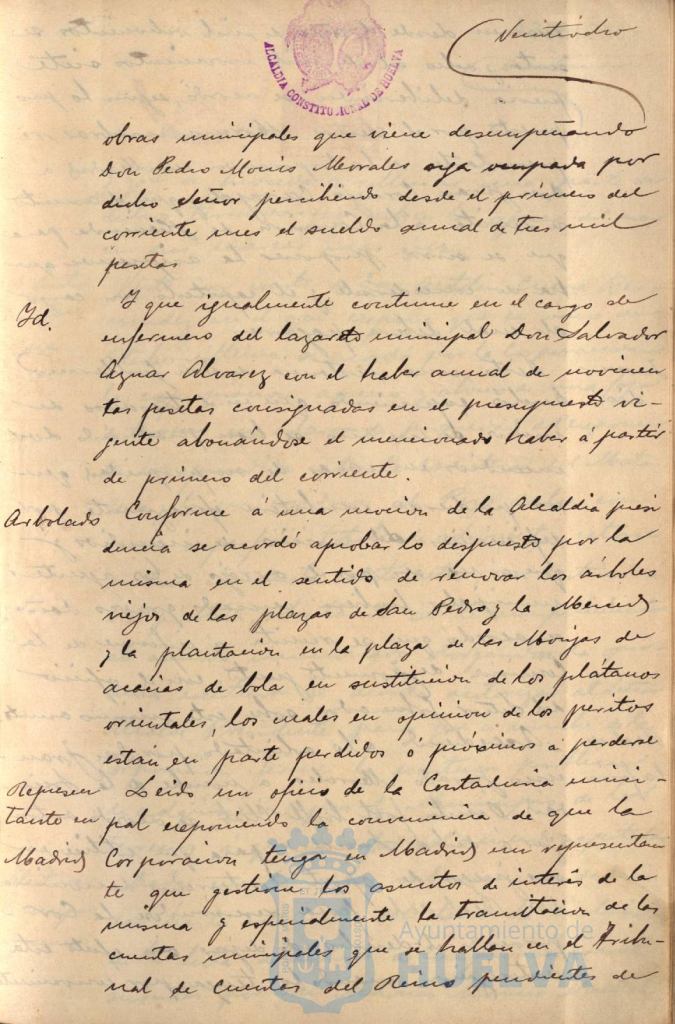 Veintiocho
ALCALDIA CONSTITUCIONAL DE HUELVA
obras municipales que viene desempeñando
Don Pedro Morales siga ocupada por
dicho Señor percibiendo desde el primero del
corriente mes el sueldo anual de tres mil
pesetas
Id.
Y que igualmente continue en el cargo de
enfermero del lazareto municipal Don Salvador
Aznar Alvarez con el haber anual de novicien
tas pesetas consignadas en el presupuesto vi-
gente abonándose el mencionado haber á partir
de primero del corriente.
Arbolado
Conforme á una mocion de la Alcaldia presi
dencia se acordó aprobar lo dispuesto por la
misma en el sentido de renovar los árboles
viejos de las plazas de San Pedro y la Merced
y la plantacion en la plaza de las Monjas de
acacias de bola en sustitucion de los plátanos
orientales, los cuales en opinion de los peritos
están en parte perdidos ó próximos á perderse
Represen
tante en
Madrid
Leido un oficio de la Contaduria munici-
pal exponiendo la conveniencia de que la
Corporacion tenga en Madrid un representan
te que gestione los asuntos de interés de la
misma y especialmente la tramitacion de las
cuentas municipales que se hallan en el Tribu-
nal de Cuentas del Reino pendientes de
Ayuntamiento de
HUELVA